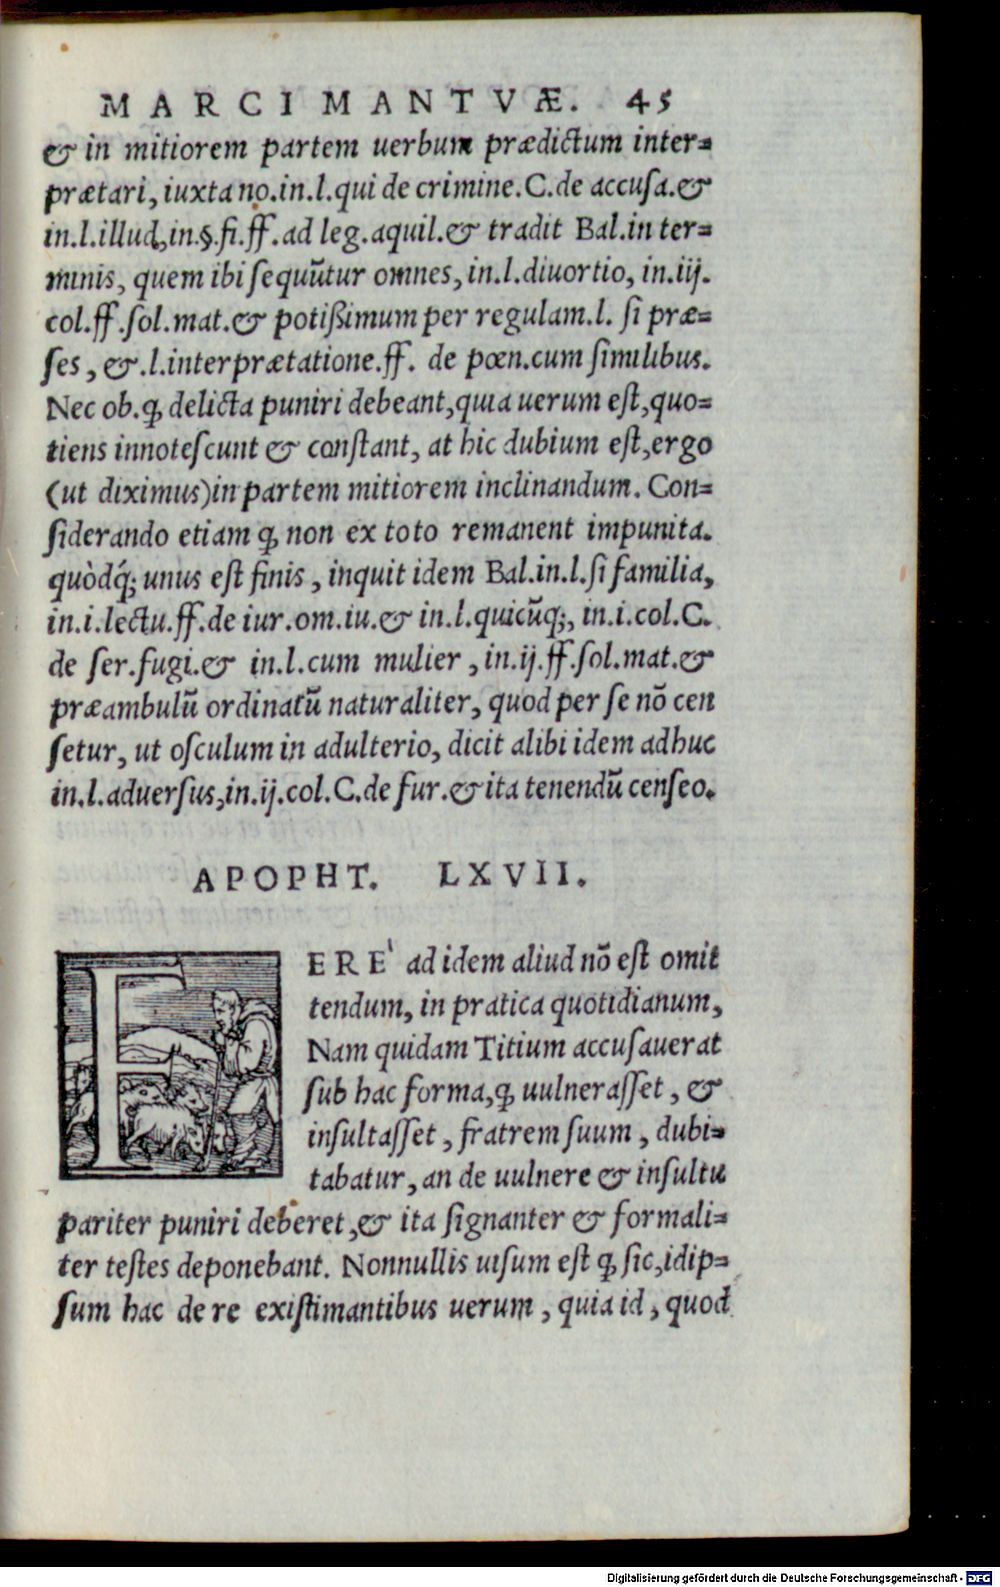 MARCI MANTVÆ. 45
& in mitiorem partem uerbum prædictum inter=
prætari, iuxta no.in.l.qui de crimine.C.de accuſa.&
in.l.illud,in.§.fi.ff.ad leg.aquil.& tradit Bal.in ter=
minis, quem ibi ſequũtur omnes, in.l.diuortio, in.iij.
col.ff.ſol.mat.& potißimum per regulam.l. ſi præ=
ſes, &.l.interprætatione.ff. de pœn.cum ſimilibus.
Nec ob.ꝙ delicta puniri debeant,quia uerum eſt,quo=
tiens innoteſcunt & conſtant, at hic dubium eſt,ergo
(ut diximus)in partem mitiorem inclinandum. Con=
ſiderando etiam ꝙ non ex toto remanent impunita.
quòdq́; unus eſt finis, inquit idem Bal.in.l.ſi familia,
in.i.lectu.ff.de iur.om.iu.& in.l.quicũq;, in.i.col.C.
de ſer.fugi.& in.l.cum mulier, in.ij.ff.ſol.mat.&
præambulũ ordinatũ naturaliter, quod per ſe nõ cen
ſetur, ut oſculum in adulterio, dicit alibi idem adhuc
in.l.aduerſus,in.ij.col.C.de fur.& ita tenendũ cenſeo.
APOPHT. LXVII.
FERE' ad idem aliud nõ eſt omit
tendum, in pratica quotidianum,
Nam quidam Titium accuſauerat
ſub hac forma,ꝙ uulneraſſet, &
inſultaſſet, fratrem ſuum, dubi=
tabatur, an de uulnere & inſultu
pariter puniri deberet,& ita ſignanter & formali=
ter teſtes deponebant. Nonnullis uiſum eſt ꝙ ſic,idip=
ſum hac de re exiſtimantibus uerum, quia id, quod
Digitalisierung gefördert durch die Deutsche Forschungsgemeinschaft - DFG